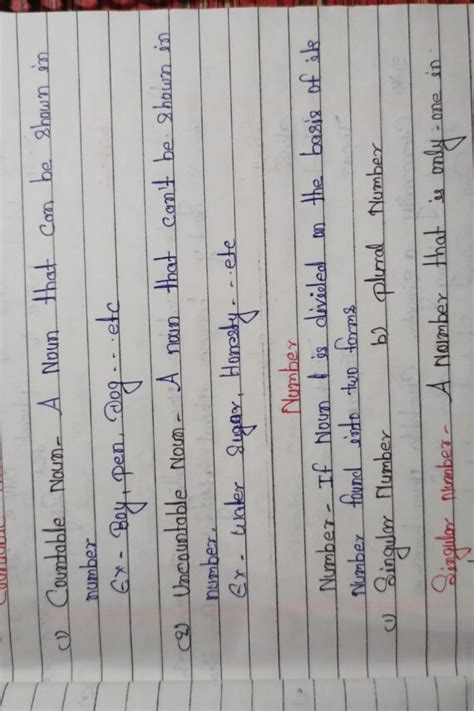 (1) Countable Noun- A Noun that can be shown in
number
Ex- Boy, pen, Dog....etc
(2) Uncountable Noun- A noun that can't be shown in
number.
Ex- water sugar, Honesty....etc
Number
Number- If Noun is divided on the basis of its
Number found into two forms
(1) Singular Number b) plural Number
Singular Number- A Number that is only one in